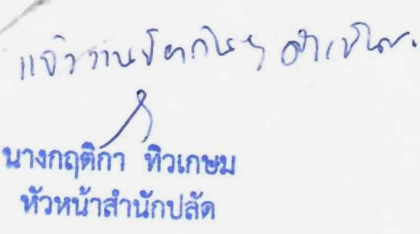 แจ้งงานป้องกันฯ ดำเนินการ
นางกฤติกา ทิวเกษม
หัวหน้าสำนักปลัด